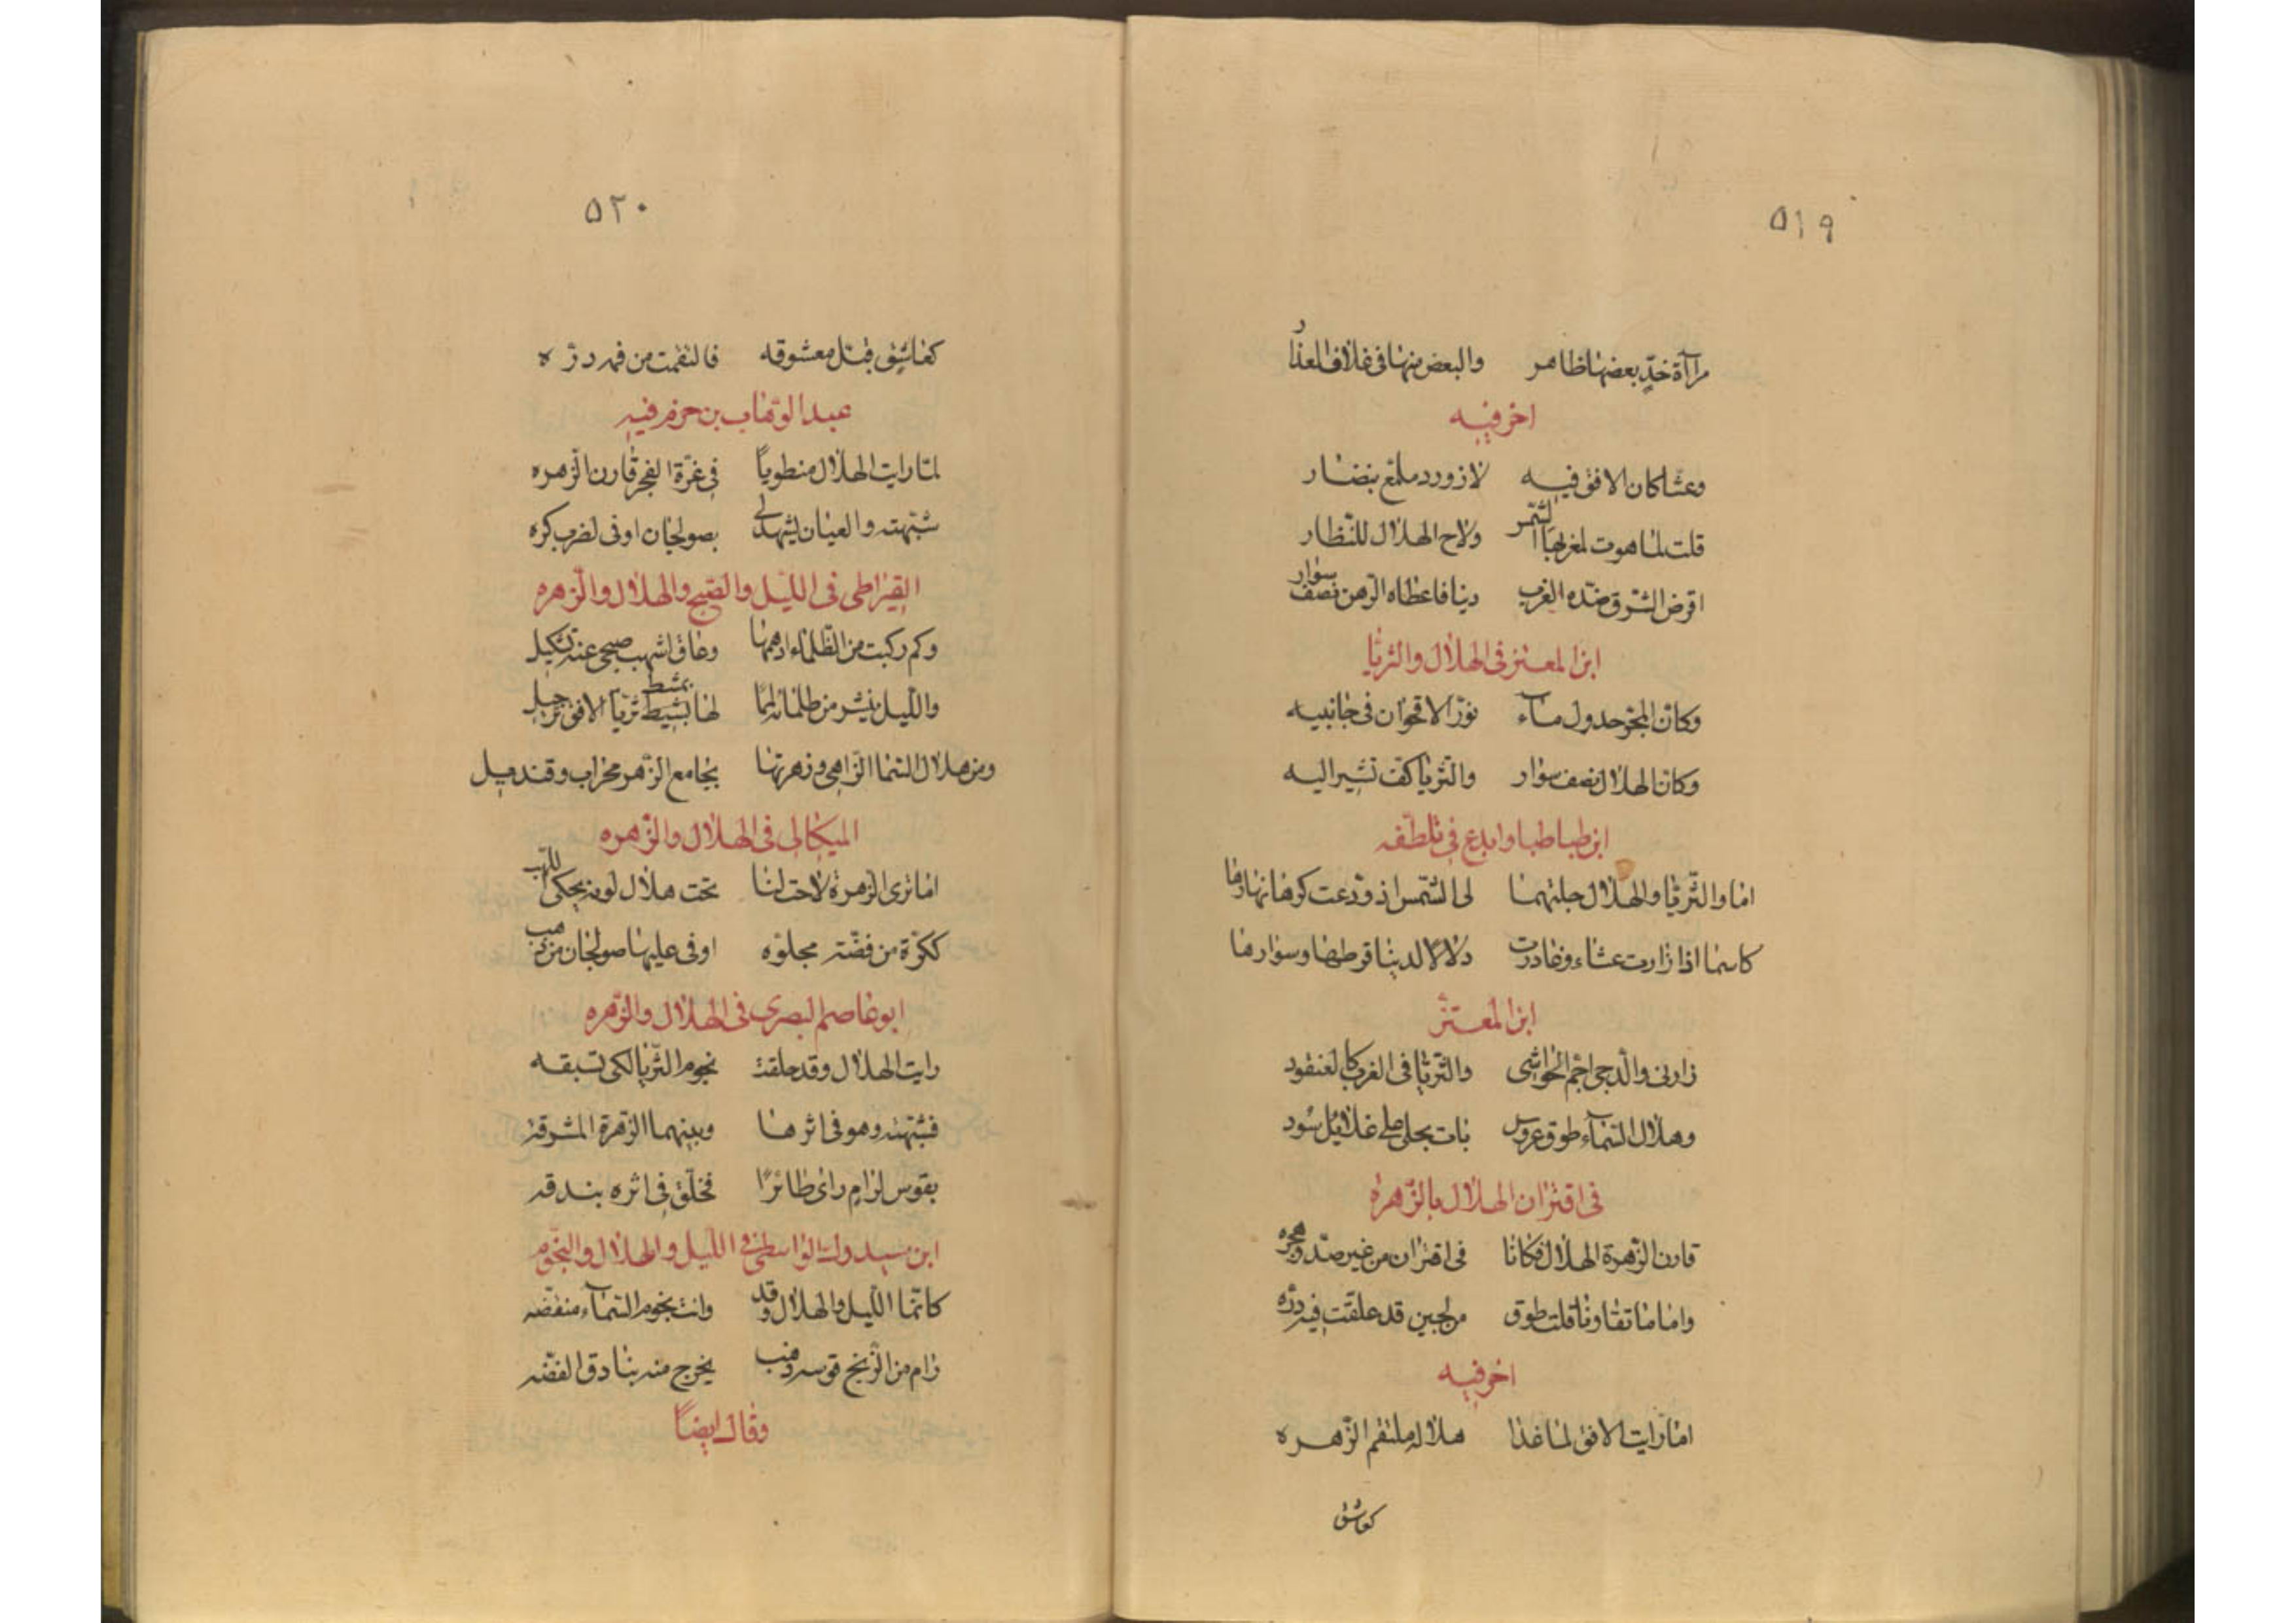 ٥١٩
مرآة خدّ بعضها ظاهر والبعض منها فى غلاف العذار
اخر فيه
وعشا كان الافق فيه لازورد ملمّع بنضار
قلت لما هوت لمغربها الشمس ولاح الهلال للنظار
اقرض الشرق ضده الغرب دينا فاعطاه الرهن نصف سوار
ابن المعتز فى الهلال والثريا
وكان المجرّ جدول مآء نوّر الاقحوان فى جانبيه
وكان الهلال نصف سوار والثريا كف تشير اليه
ابن طباطبا وابدع فى تلطفه
اما والثريا والهلال جلتهما لى الشمس اذ ودعت كرها نهارها
كاسما اذا زارت عشاء وغادرت دلالا لدينا قرطها وسوارها
ابن المعتز
زارنى والدجى احم الحواشى والثريا فى الغرب كالعنقود
وهلال السمآء طوق عروس بات يجلى على غلائل سود
فى اقتران الهلال بالزهره
قارن الزهرة الهلال فكانا فى اقتران من غير صد وهجره
واما ما تقاونا قلت طوق من لجين قد علقت فيه درّه
اخر فيه
اما رايت الافق لما غدا هلاله ملتقم الزهره
كعاشق
٥٢٠
كعاشق قبّل معشوقه فالتقمت من فمه درّه
عبد الوهاب بن حزم فيه
لمّا رايت الهلال منطوياً فى غرّة الفجر قارن الزهره
شبّهته والعيان يشهد لى بصولجان اوفى لضرب كره
القيراطى فى الليل والصبح والهلال والزهره
وكم ركبت من الظلماء ادهمها وعاق اشهب صبحى عنه تشكيل
والليل ينشر من ظلمائه لمما لها بمشط ثريا الافق ترجيل
ومن هلال السما الزاهى وزهرتها بجامع الزهر محراب وقنديل
الميكالى فى الهلال والزهره
اما ترى الزهرة لاحت لنا تحت هلال لونه يحكى اللهب
ككرّة من فضّة مجلوّه اوفى عليها صولجان من ذهب
ابو عاصم البصرى فى الهلال والزهره
رايت الهلال وقد حلقت نجوم الثريا لكى تسبقه
فشبّهته وهو فى اثرها وبينهما الزهرة المشرقه
بقوس لرام راى طائرًا فخلّق فى اثره بندقه
ابن سيدولة الواسطى فى الليل والهلال والنجوم
كانّما الليل والهلال وقد وانت نجوم السمآء منقضّه
رام من الزنج قوسه ذهب يخرج منه بنادق الفضّه
وقال ايضاً